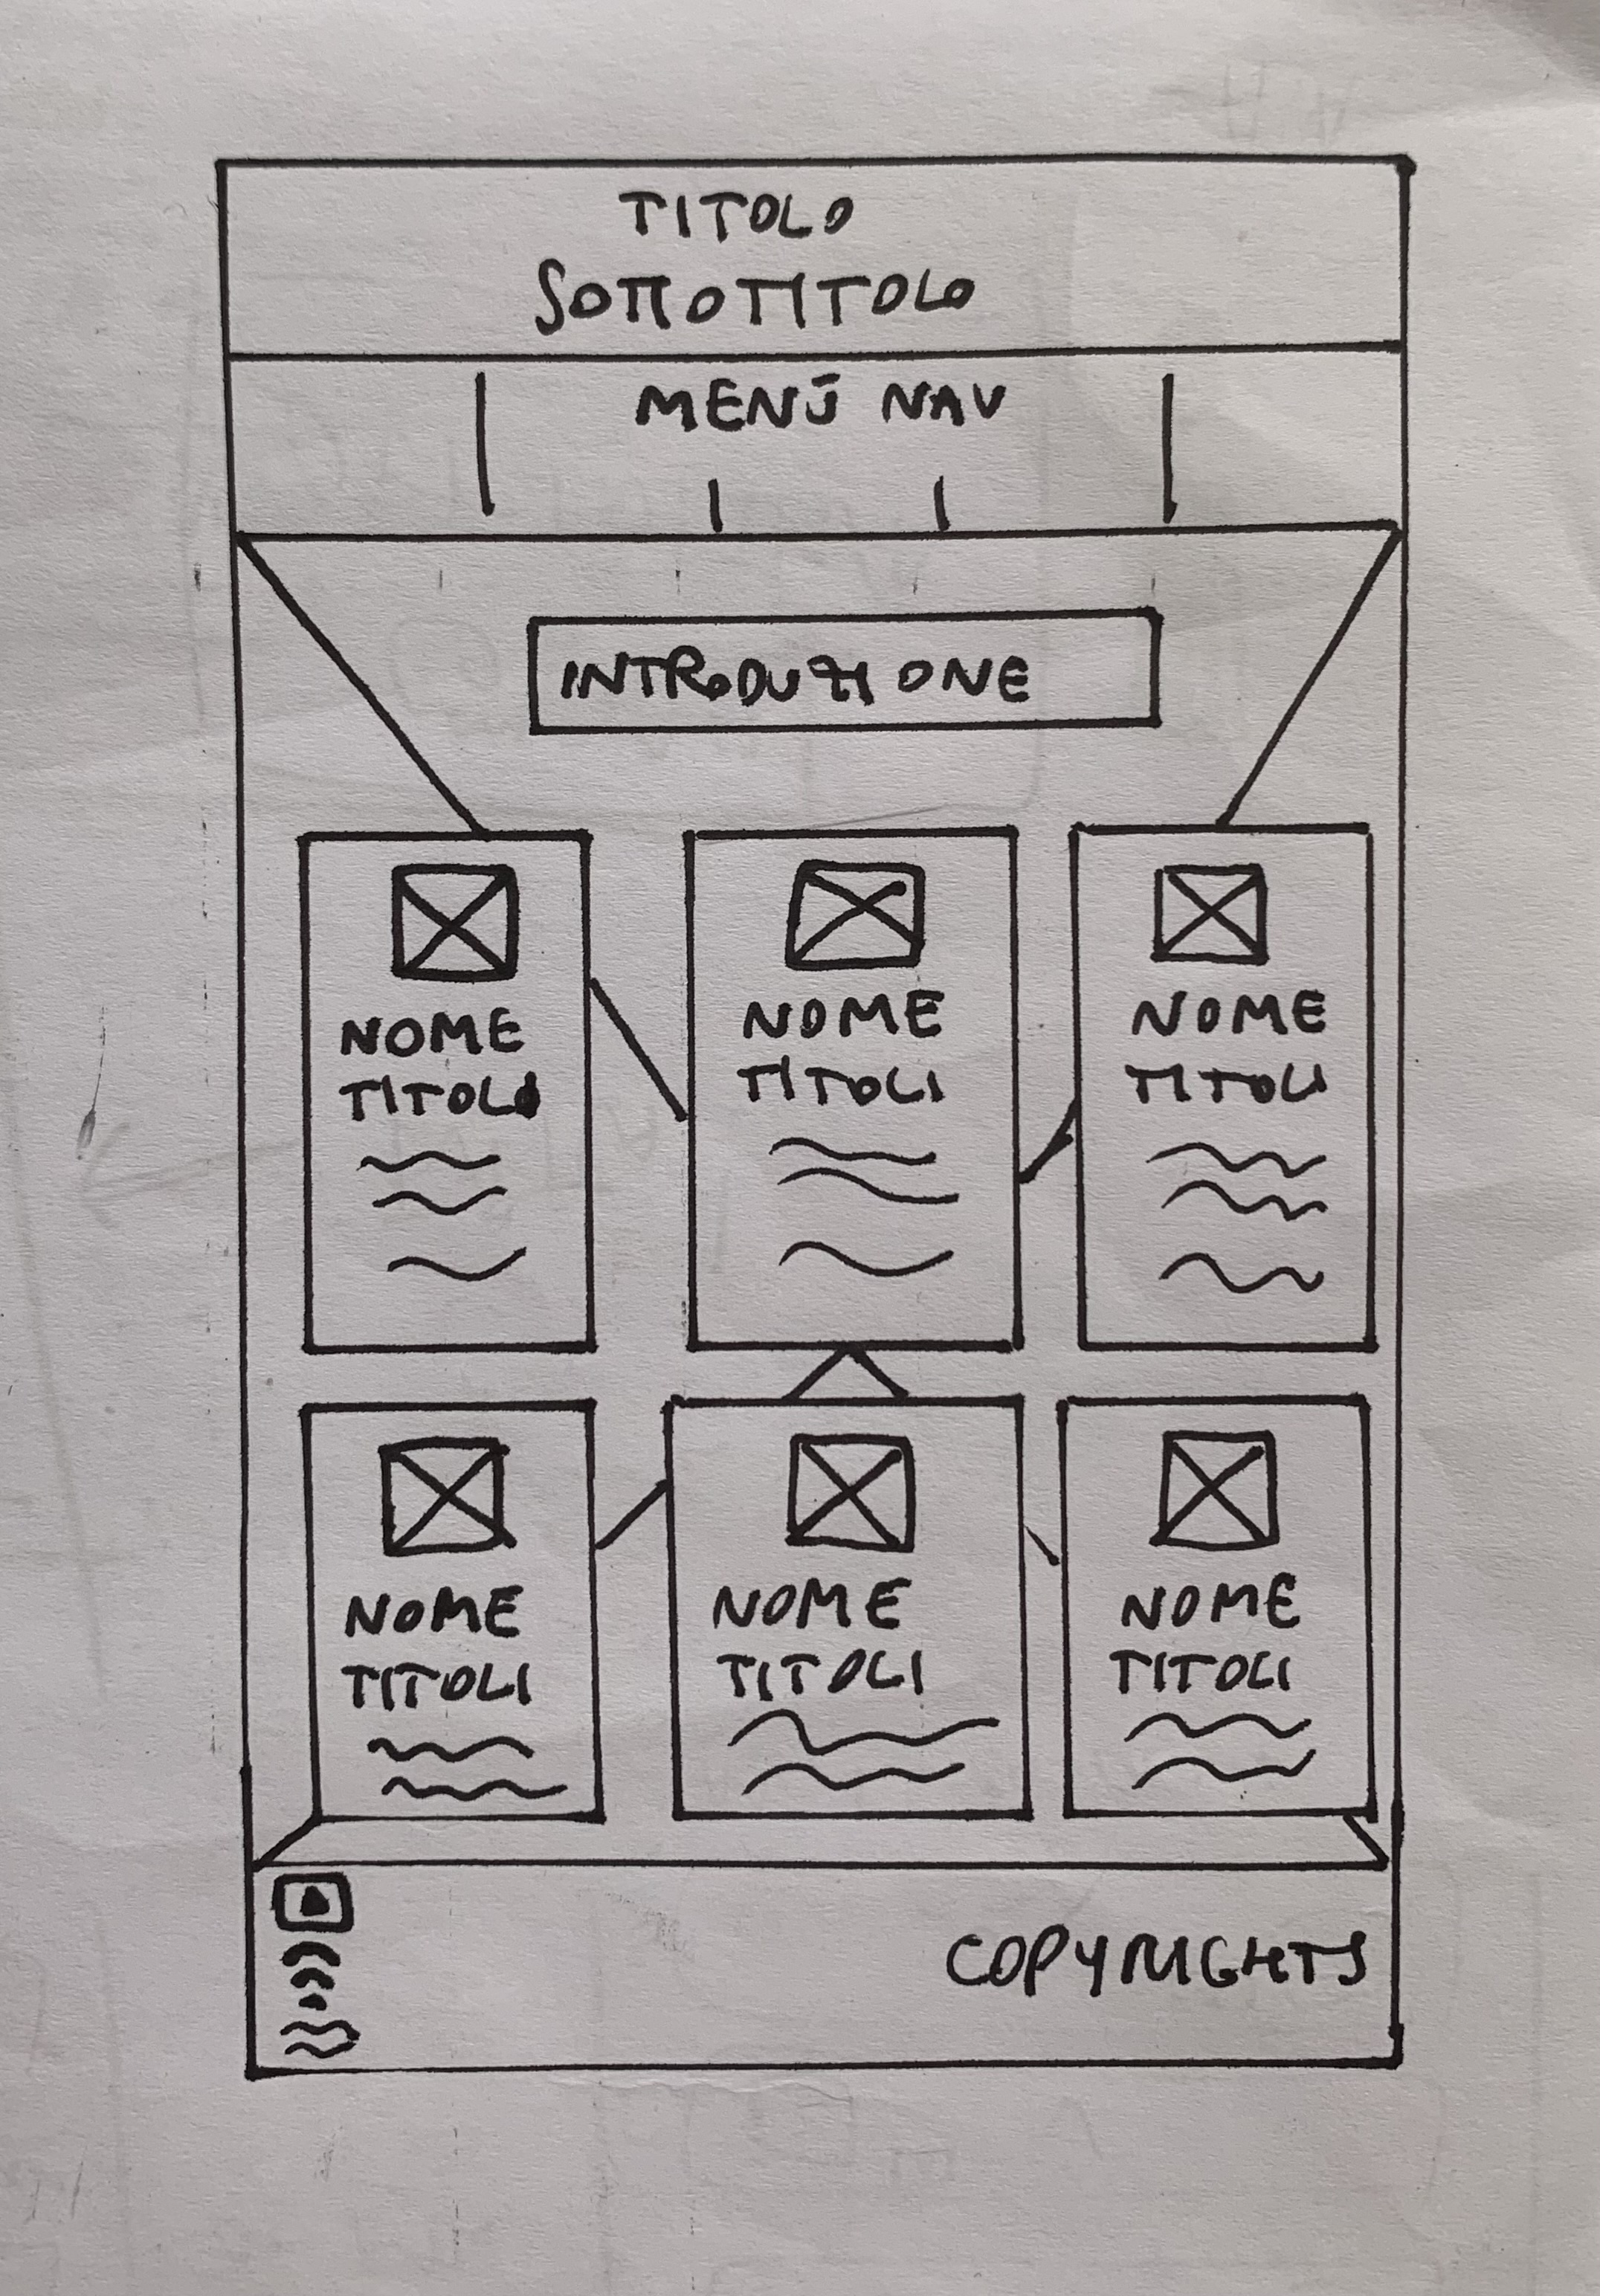 TITOLO
SOTTOTITOLO
MENÚ NAV
INTRODUZIONE
NOME
TITOLO
NOME
TITOLI
NOME
TITOLI
NOME
TITOLI
NOME
TITOLI
NOME
TITOLI
COPYRIGHTS